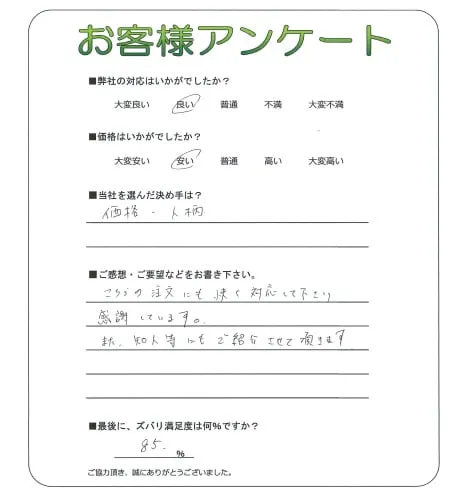 お客様アンケート
■弊社の対応はいかがでしたか？
大変良い 良い 普通 不満 大変不満
■価格はいかがでしたか？
大変安い 安い 普通 高い 大変高い
■当社を選んだ決め手は？
価格・人柄
■ご感想・ご要望などをお書き下さい。
こちらの注文にも快く対応して下さり
感謝しています。
また、知人等にもご紹介させて頂きます
■最後に、ズバリ満足度は何％ですか？
85. ％
ご協力頂き、誠にありがとうございました。